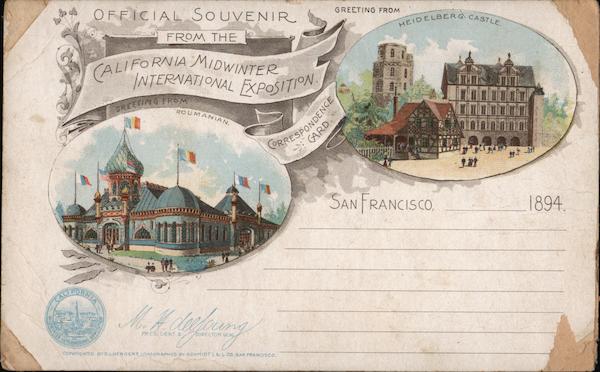 OFFICIAL SOUVENIR
FROM THE
CALIFORNIA MIDWINTER
INTERNATIONAL EXPOSITION.
CORRESPONDENCE
CARD
GREETING FROM
HEIDELBERG CASTLE.
GREETING FROM
ROUMANIAN.
SAN FRANCISCO, 1894.
CALIFORNIA
M. H. de Young
PRESIDENT & DIRECTOR GENL.
LITHOGRAPHED BY SCHMIDT L. & L. CO. SAN FRANCISCO.